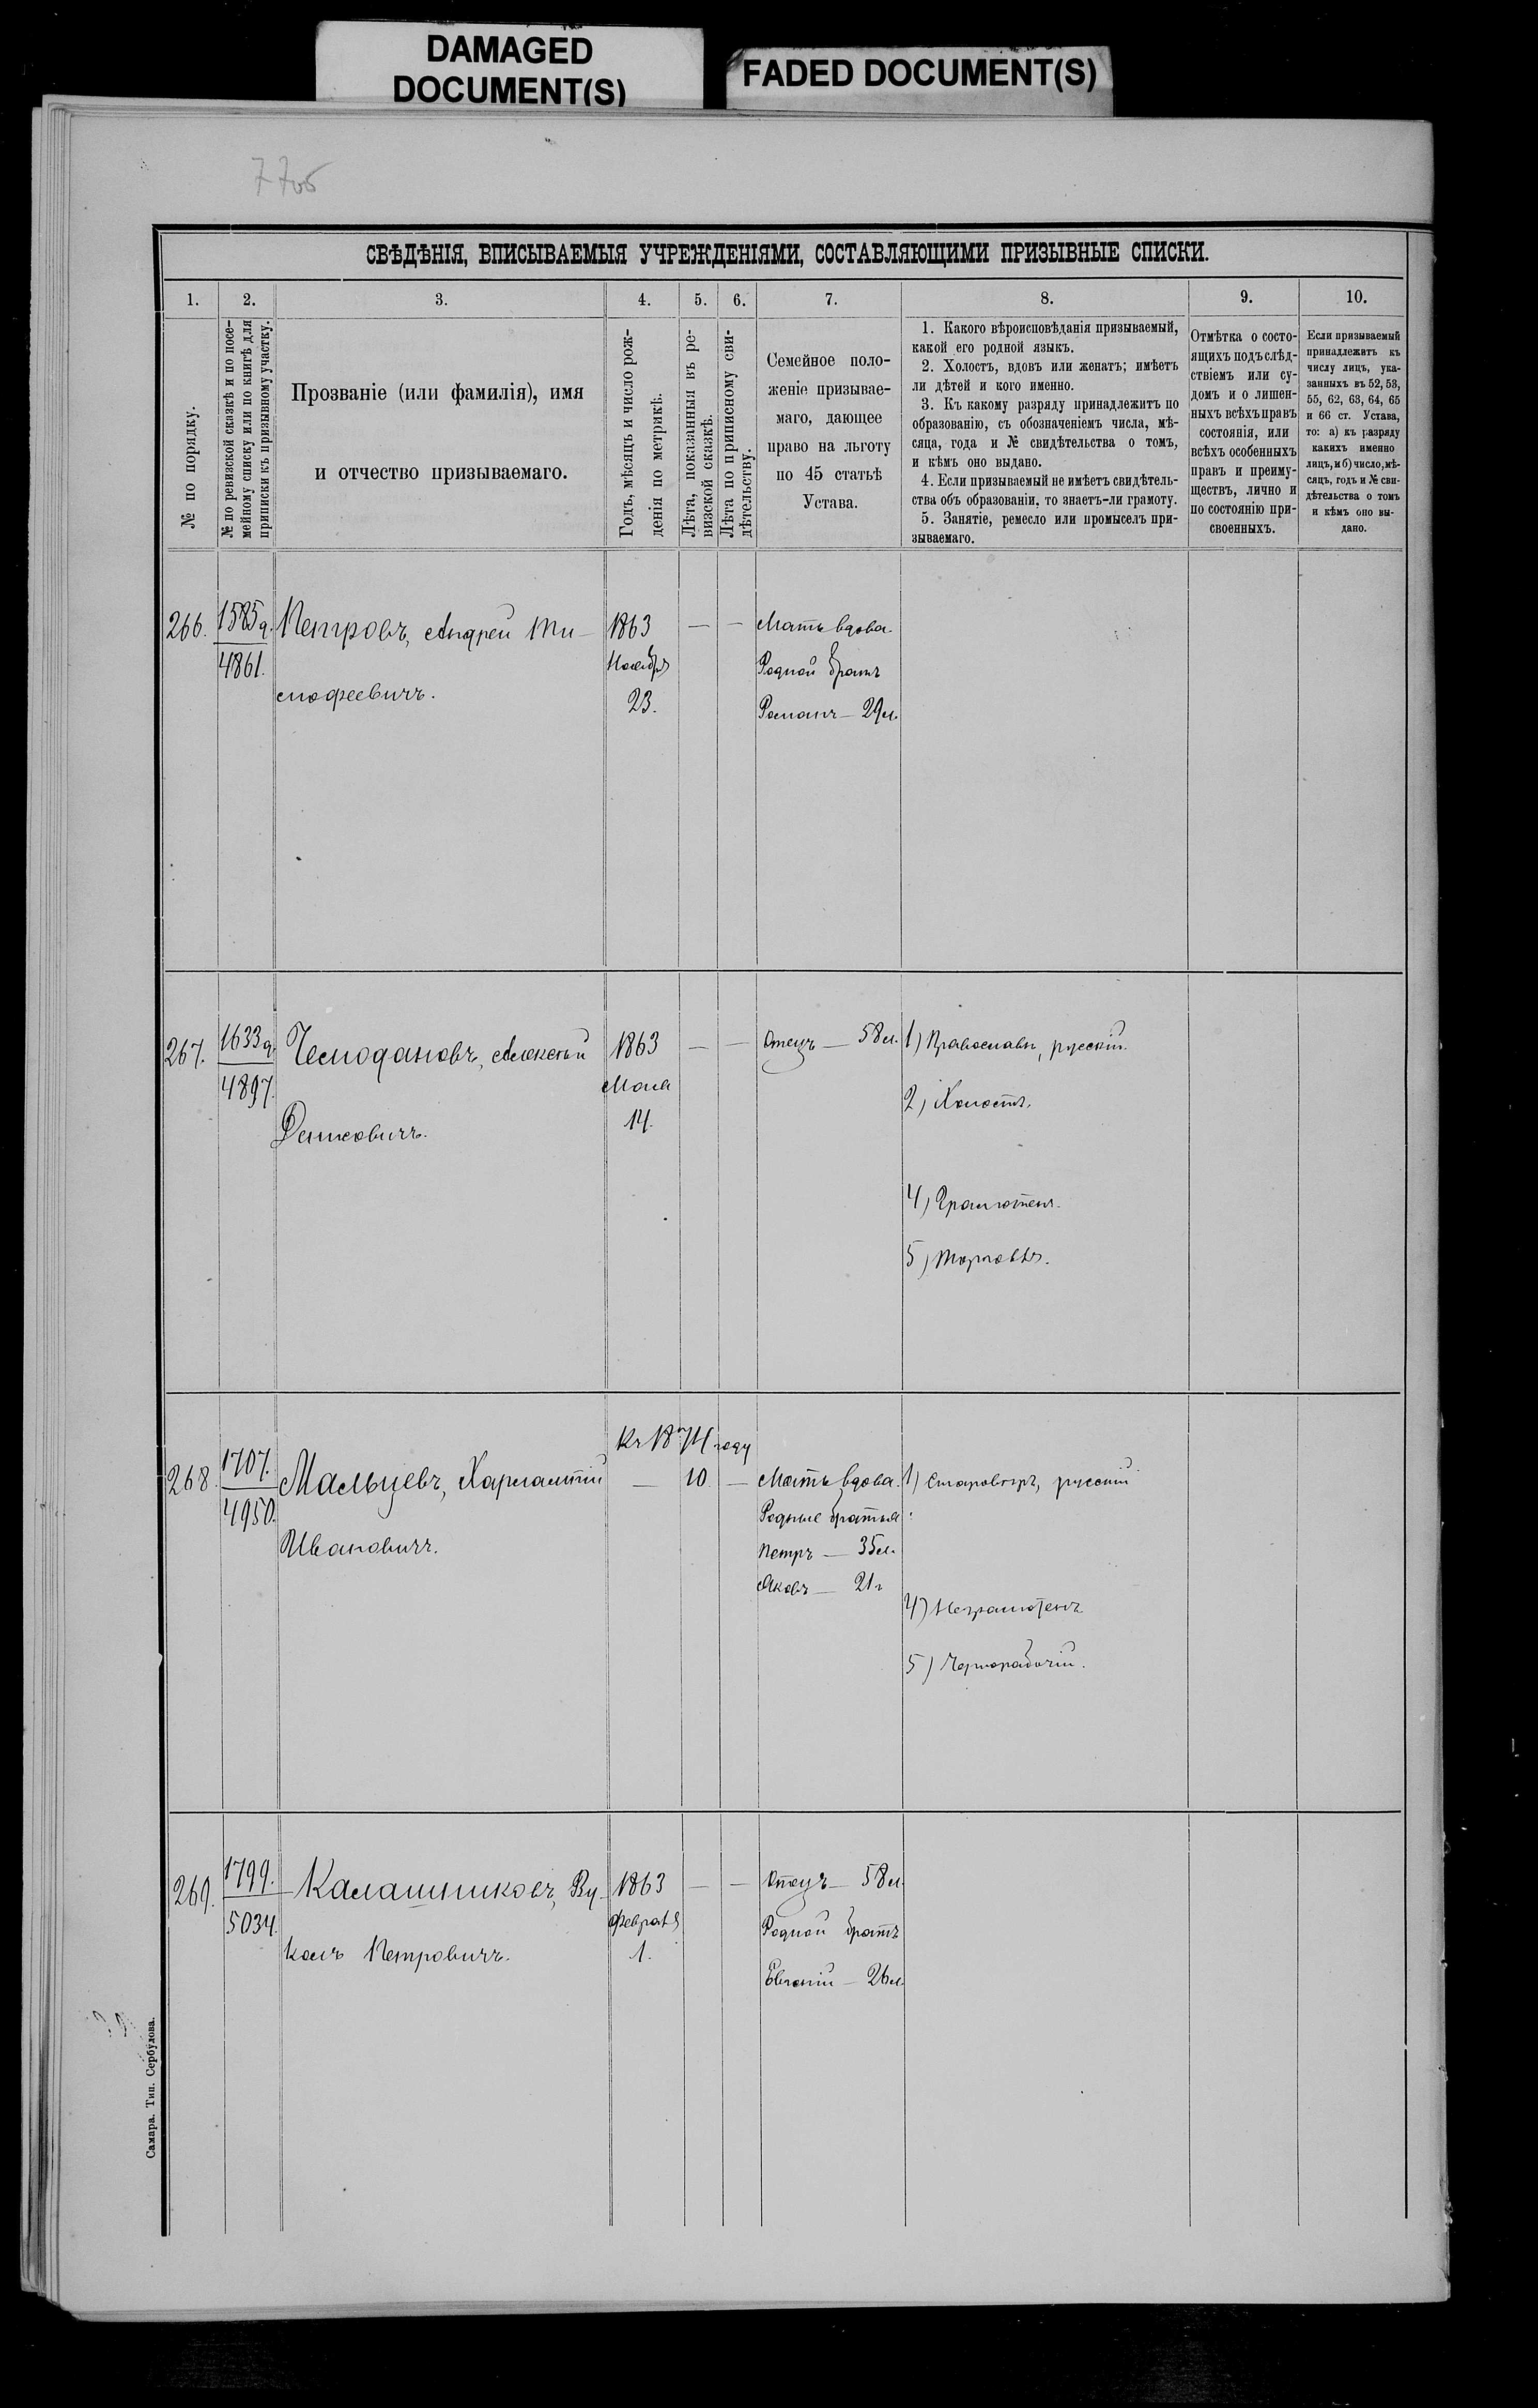 DAMAGED
DOCUMENT(S)
FADED DOCUMENT(S)
СВѢДѢНІЯ, ВПИСЫВАЕМЫЯ УЧРЕЖДЕНІЯМИ, СОСТАВЛЯЮЩИМИ ПРИЗЫВНЫЕ СПИСКИ.
1.
2.
3.
4.
5.
6.
7.
8.
9.
10.
№ по порядку.
№ по ревизской сказкѣ и по посе-
мейному списку или по книгѣ для
приписки къ призывному участку.
Прозваніе (или фамилія), имя
и отчество призываемаго.
Годъ, мѣсяцъ и число рож-
денія по метрикѣ.
Лѣта, показанныя въ ре-
визской сказкѣ.
Лѣта по приписному сви-
дѣтельству.
Семейное поло-
женіе призывае-
маго, дающее
право на льготу
по 45 статьѣ
Устава.
1. Какого вѣроисповѣданія призываемый,
какой его родной языкъ.
2. Холостъ, вдовъ или женатъ; имѣетъ
ли дѣтей и кого именно.
3. Къ какому разряду принадлежитъ по
образованію, съ обозначеніемъ числа, мѣ-
сяца, года и № свидѣтельства о томъ,
и кѣмъ оно выдано.
4. Если призываемый не имѣетъ свидѣтель-
ства объ образованіи, то знаетъ-ли грамоту.
5. Занятіе, ремесло или промыселъ при-
зываемаго.
Отмѣтка о состо-
ящихъ подъ слѣд-
ствіемъ или су-
домъ и о лишен-
ныхъ всѣхъ правъ
состоянія, или
всѣхъ особенныхъ
правъ и преиму-
ществъ, лично и
по состоянію при-
своенныхъ.
Если призываемый
принадлежитъ къ
числу лицъ, ука-
занныхъ въ 52, 53,
55, 62, 63, 64, 65
и 66 ст. Устава,
то: а) къ разряду
какихъ именно
лицъ, и б) число, мѣ-
сяцъ, годъ и № сви-
дѣтельства о томъ
и кѣмъ оно вы-
дано.
266.
1585 д.
4861.
Петровъ, Андрей Ти-
мофеевичъ.
1863
Ноября
23.
—
—
Мать вдова.
Родной братъ
Романъ — 29 л.
267.
1633 д.
4897.
Чемодановъ, Алексѣй
Денисовичъ.
1863
Мая
14.
—
—
Отецъ — 58 л.
1) Православн, русскій.
2) Холостъ.
4) Грамотенъ.
5) Торговля.
268.
1707.
4950.
Мальцевъ, Харлампій
Ивановичъ.
Къ 1874 году
—
10
—
Мать вдова.
Родные братья
Петръ — 35 л.
Яковъ — 21 "
1) Старовѣръ, русскій
4) Неграмотенъ
5) Чернорабочій.
269.
1799.
5034.
Калашниковъ, Ву-
колъ Петровичъ.
1863
Февраля
1.
—
—
Отецъ — 58 л.
Родной братъ
Евгеній — 26 л.
Самара. Тип. Сербулова.